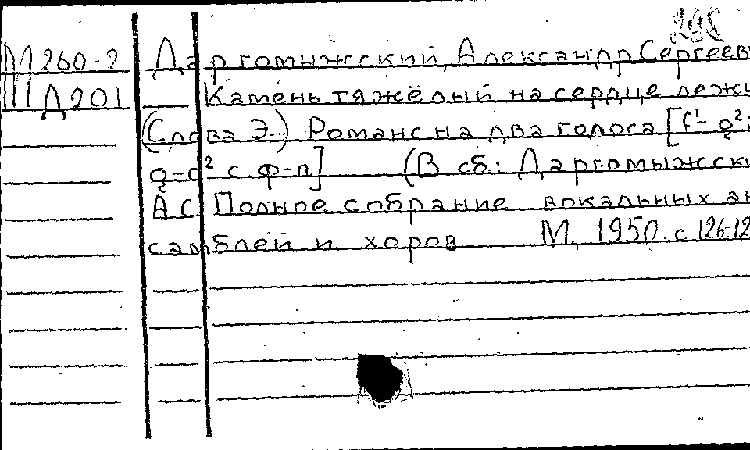 М260-2 Даргомыжский, Александр Сергеев
III Д201 Камень тяжёлый на сердце лежи
(Слова Э.) Романс на два голоса [f¹-g²;
a-d² с ф-п] (В сб: Даргомыжски
А.С. Полное собрание вокальных ан
самблей и хоров М, 1950. с 126-12